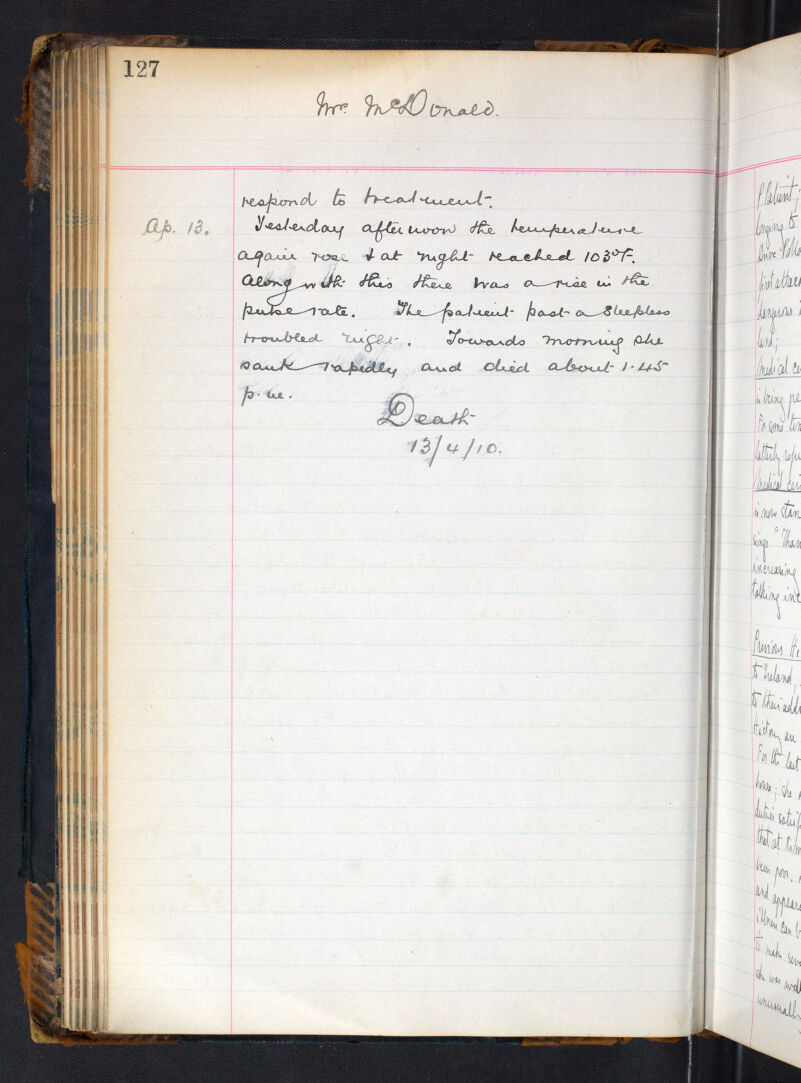 127
Mrs. McDonald.
respond to treatment.
Ap. 13. Yesterday afternoon the temperature
again rose & at night reached 103°F.
Along with this there was a rise in the
pulse rate. The patient past a sleepless
troubled night. Towards morning she
sank rapidly and died about 1.45
p.m.
Death
13/4/10.
P. Patient;
to
first attack
dangerous
land;
Medical
is being
For some
latterly
Medical
is now
sings "
increasing
talking
Previous
to Ireland,
to their
History are
For the last
house; she
duties
that at
been poor.
and
illness can
to make
she was
unusually